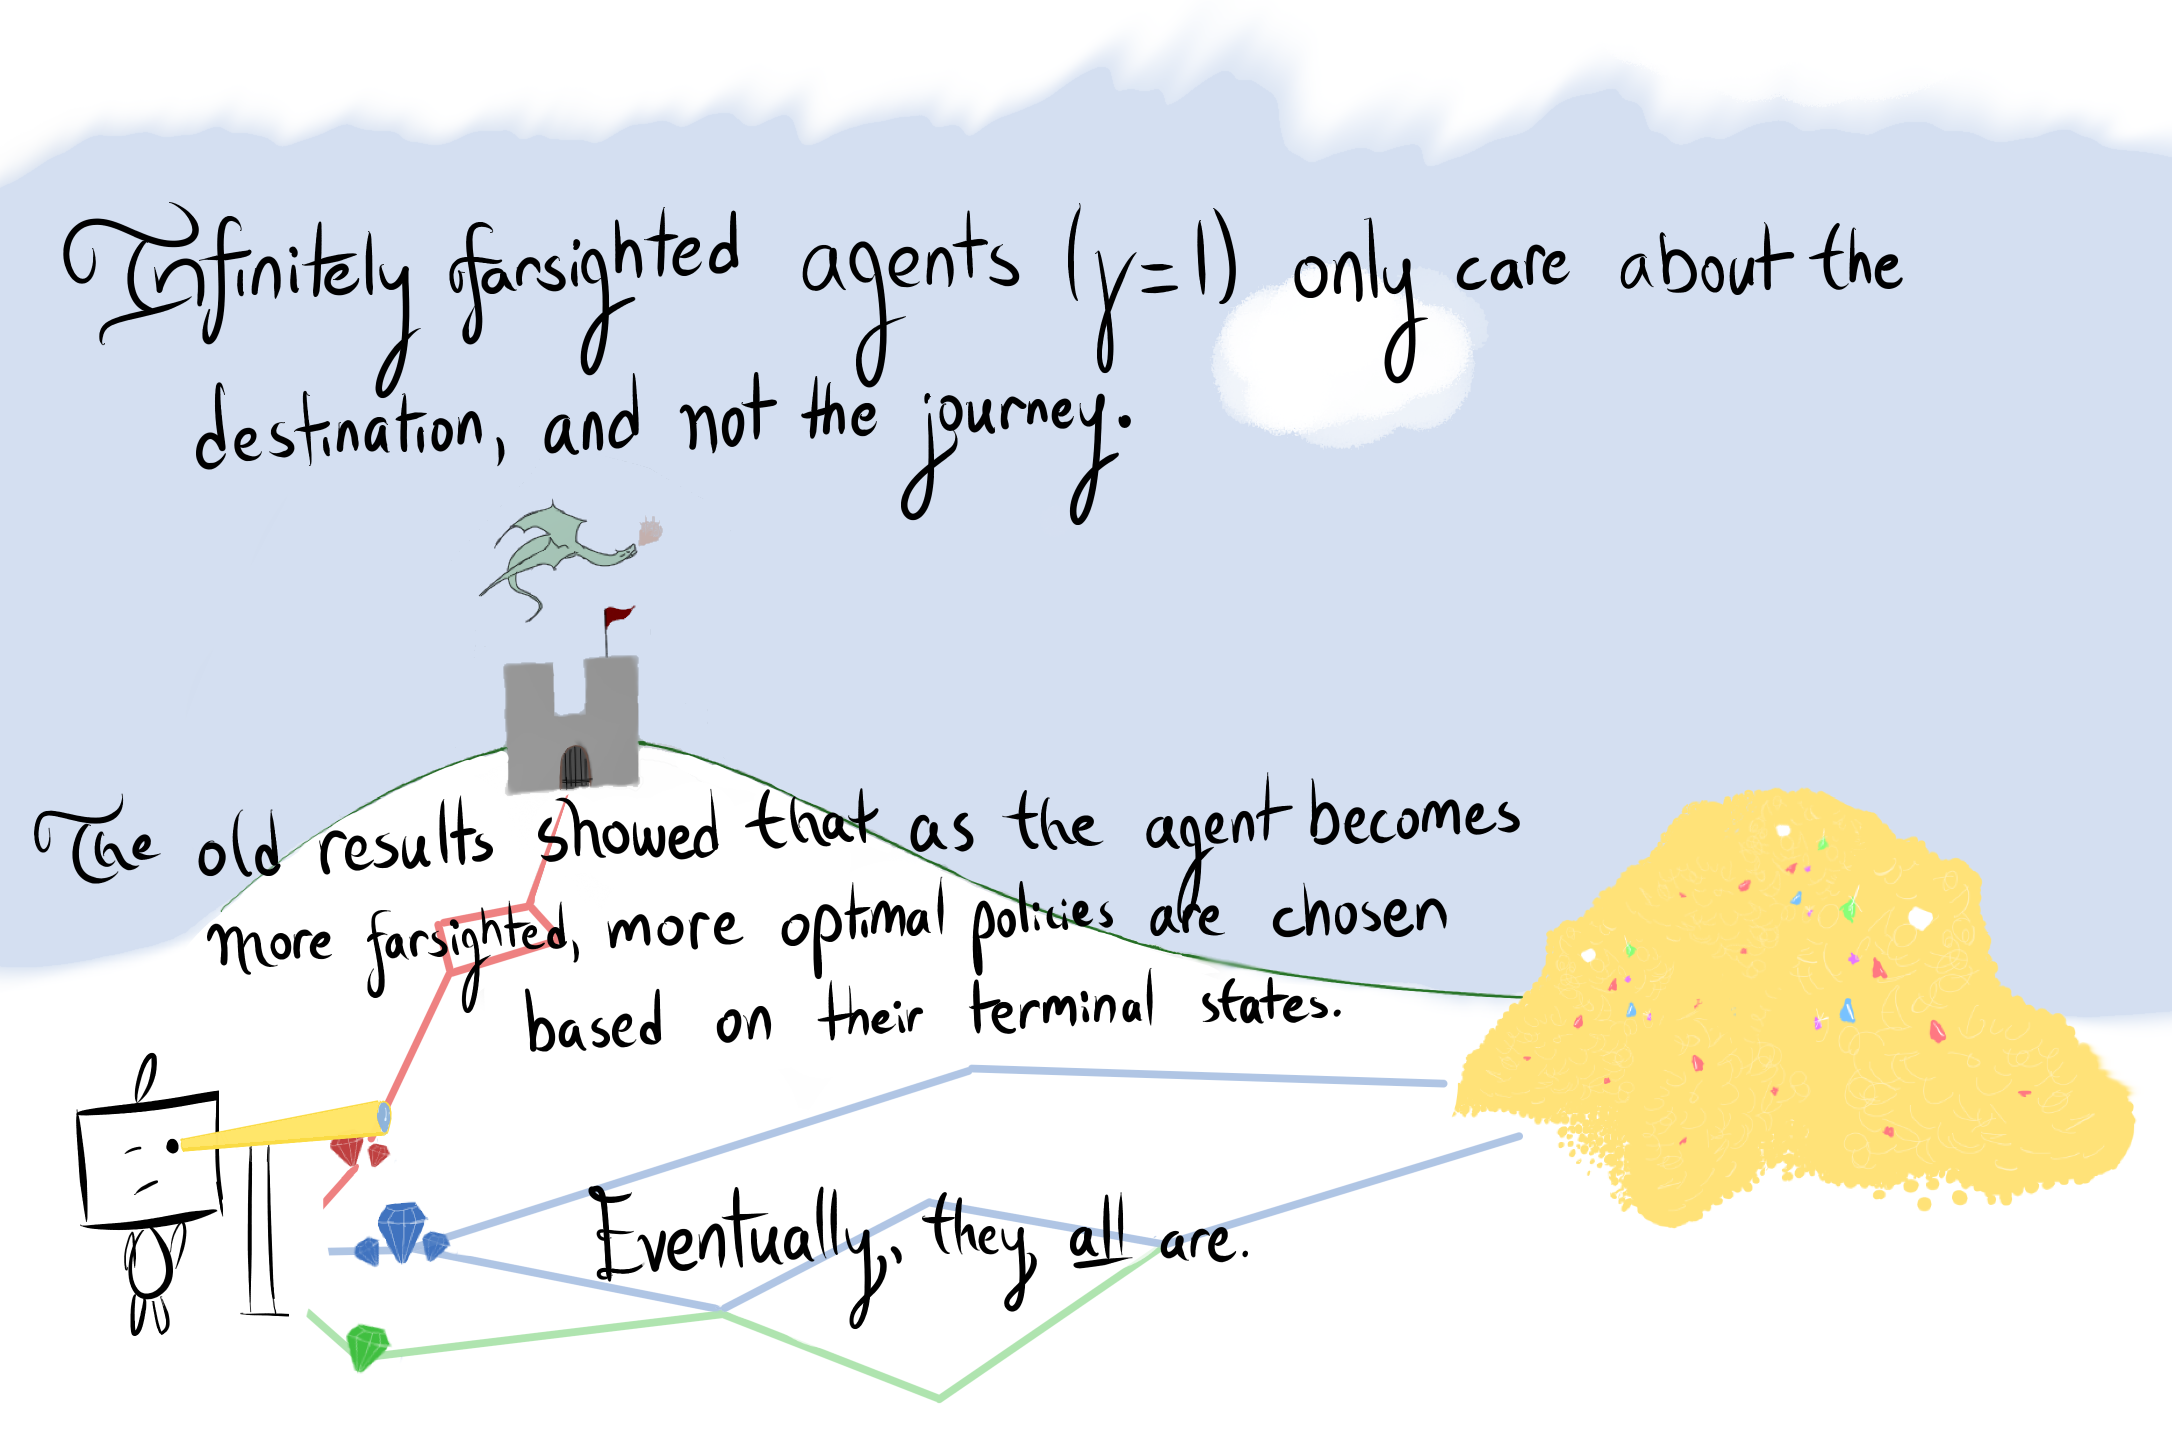 Infinitely farsighted agents (γ=1) only care about the
destination, and not the journey.
The old results showed that as the agent becomes
more farsighted, more optimal policies are chosen
based on their terminal states.
Eventually, they all are.